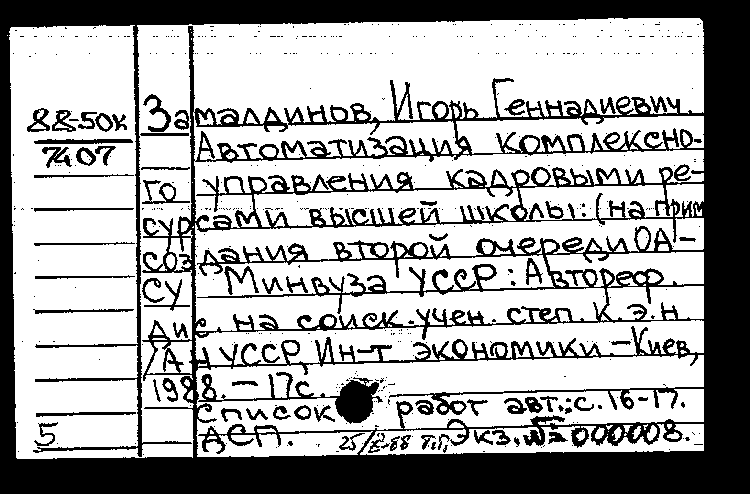 88-50к
7407
Замалдинов, Игорь Геннадиевич.
Автоматизация комплексно-
го управления кадровыми ре-
сурсами высшей школы: (на прим
создания второй очереди ОА-
СУ Минвуза УССР: Автореф.
дис. на соиск. учен. степ. к.э.н.
/АН УССР, Ин-т экономики.-Киев,
1988.-17с.
Список работ авт.: с. 16-17.
5 ДСП. Экз. №=000008.